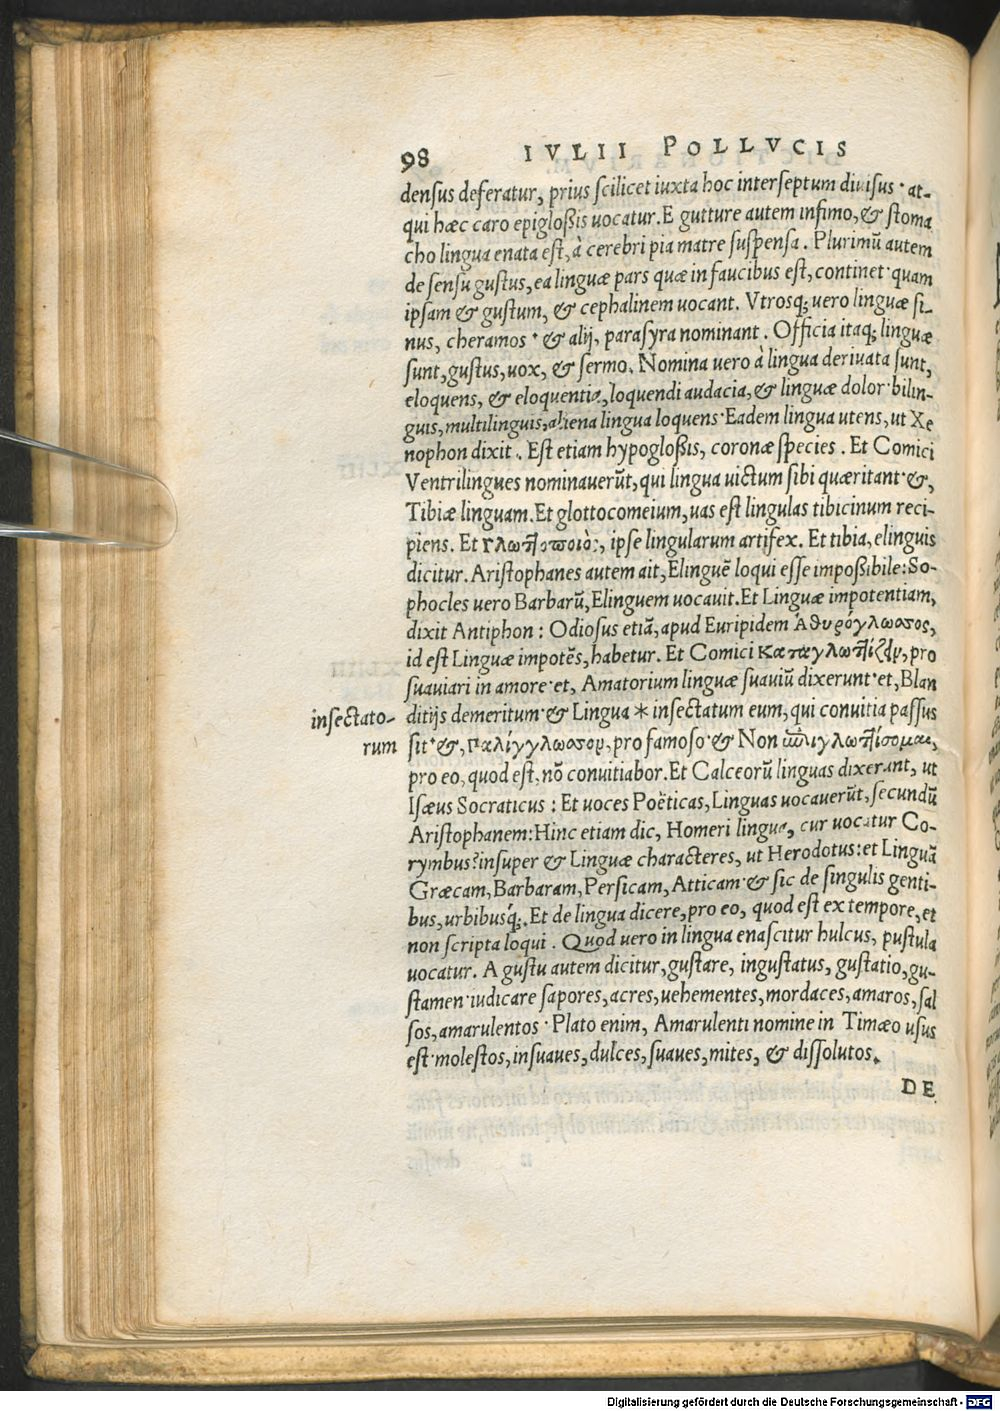 98 IVLII POLLVCIS
densus deferatur, prius scilicet iuxta hoc interseptum diuisus · at-
qui hæc caro epigloßis uocatur. E gutture autem infimo, & stoma
cho lingua enata est, à cerebri pia matre suspensa. Plurimū autem
de sensu gustus, ea linguæ pars quæ in faucibus est, continet· quam
ipsam & gustum, & cephalinem uocant. Vtrosq; uero linguæ si-
nus, cheramos · & alij, parasyra nominant. Officia itaq; linguæ
sunt, gustus, uox, & sermo. Nomina uero à lingua deriuata sunt,
eloquens, & eloquentia, loquendi audacia, & linguæ dolor· bilin-
guis, multilinguis, aliena lingua loquens· Eadem lingua utens, ut Xe
nophon dixit. Est etiam hypogloßis, coronæ species. Et Comici
Ventrilingues nominauerūt, qui lingua uictum sibi quæritant· &,
Tibiæ linguam. Et glottocomeium, uas est lingulas tibicinum reci-
piens. Et γλωττοποιὸς, ipse lingularum artifex. Et tibia, elinguis
dicitur. Aristophanes autem ait, Elinguē loqui esse impoßibile: So-
phocles uero Barbarū, Elinguem uocauit. Et Linguæ impotentiam,
dixit Antiphon: Odiosus etiā, apud Euripidem Ἀθυρόγλωσσος,
id est Linguæ impotēs, habetur. Et Comici καταγλωττίζειν, pro
suauiari in amore· et, Amatorium linguæ suauiū dixerunt· et, Blan
ditijs demeritum· & Lingua * insectatum eum, qui conuitia passus
insectato-
rum
sit· &, Παλίγγλωσσον, pro famoso· & Non
pro eo, quod est, nō conuitiabor. Et Calceorū linguas dixerunt, ut
Isæus Socraticus: Et uoces Poëticas, Linguas uocauerūt, secundū
Aristophanem: Hinc etiam dic, Homeri lingua, cur uocatur Co-
rymbus? insuper & Linguæ characteres, ut Herodotus: et Linguā
Græcam, Barbaram, Persicam, Atticam· & sic de singulis genti-
bus, urbibusq́;. Et de lingua dicere, pro eo, quod est ex tempore, et
non scripta loqui. Quod uero in lingua enascitur hulcus, pustula
uocatur. A gustu autem dicitur, gustare, ingustatus, gustatio, gu-
stamen· iudicare sapores, acres, uehementes, mordaces, amaros, sal
sos, amarulentos · Plato enim, Amarulenti nomine in Timæo usus
est· molestos, insuaues, dulces, suaues, mites, & dissolutos.
DE
Digitalisierung gefördert durch die Deutsche Forschungsgemeinschaft - DFG